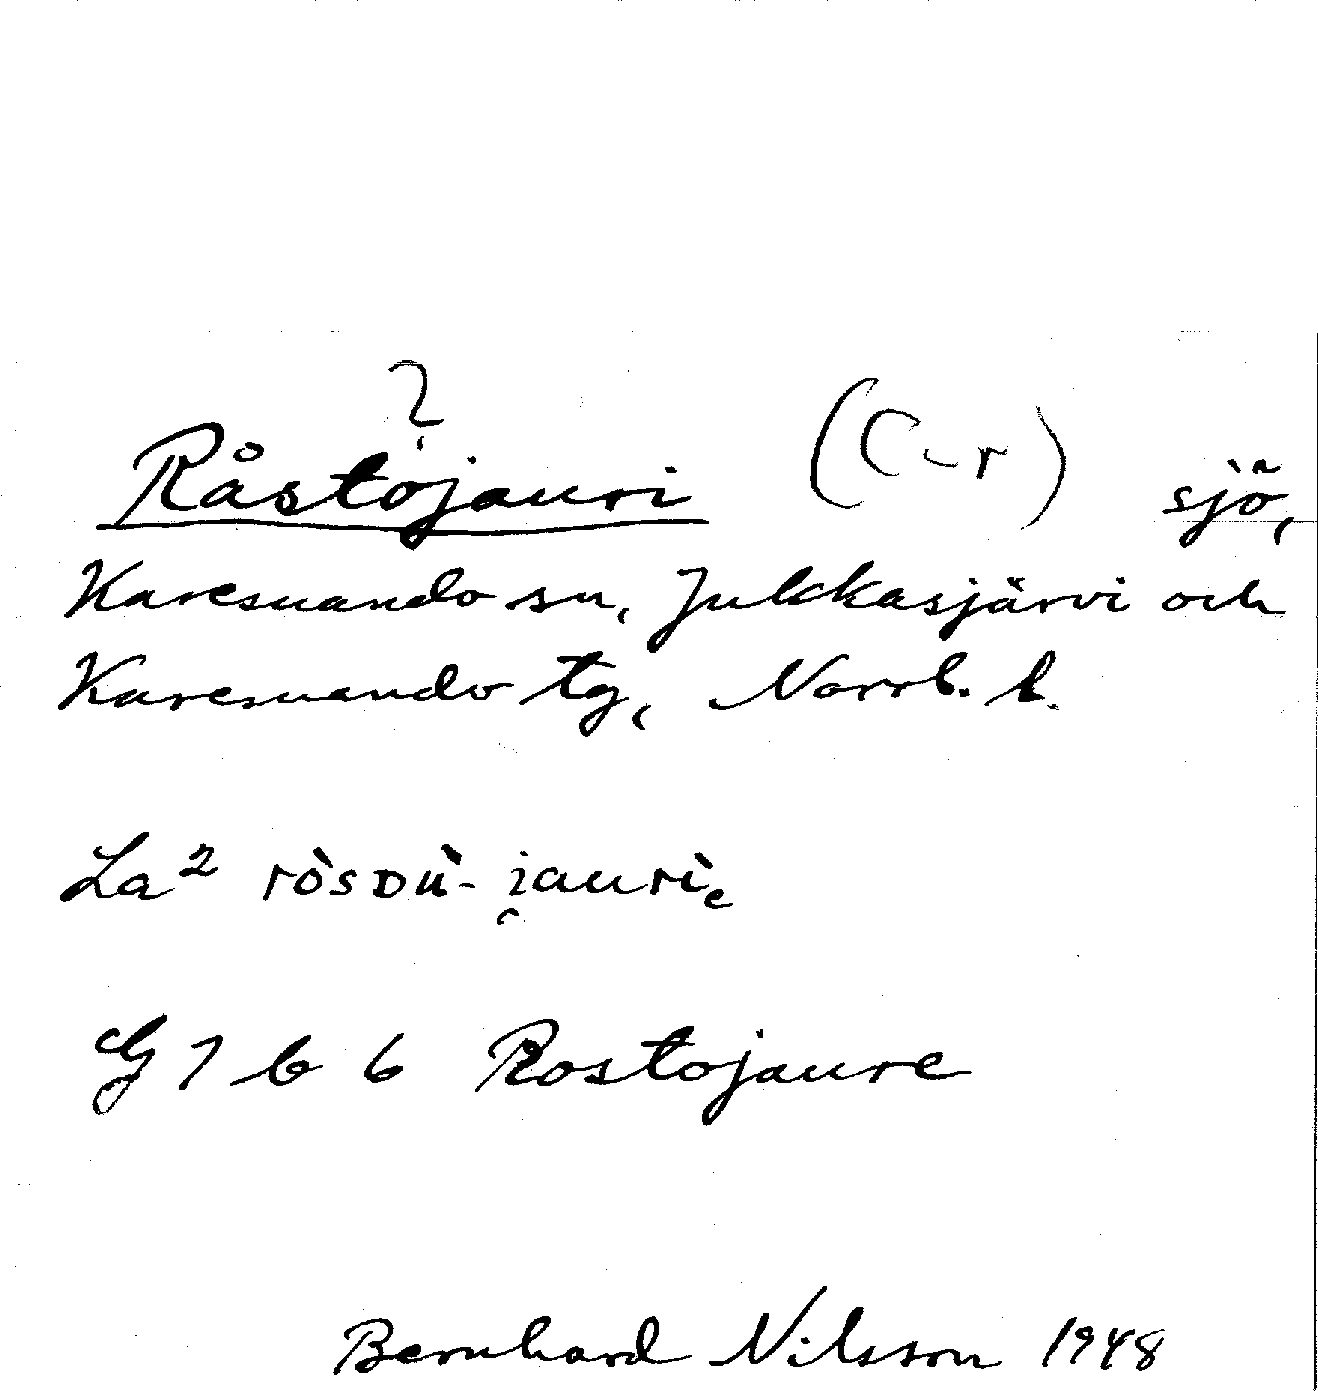 ?
Råstojauri (C-r) sjö,
Karesuando sn, Jukkasjärvi och
Karesuando tg, Norrb. l.
La² ròsᴅù-i̯aurìₑ
G 7 b 6 Rostojaure
Bernhard Nilsson 1948